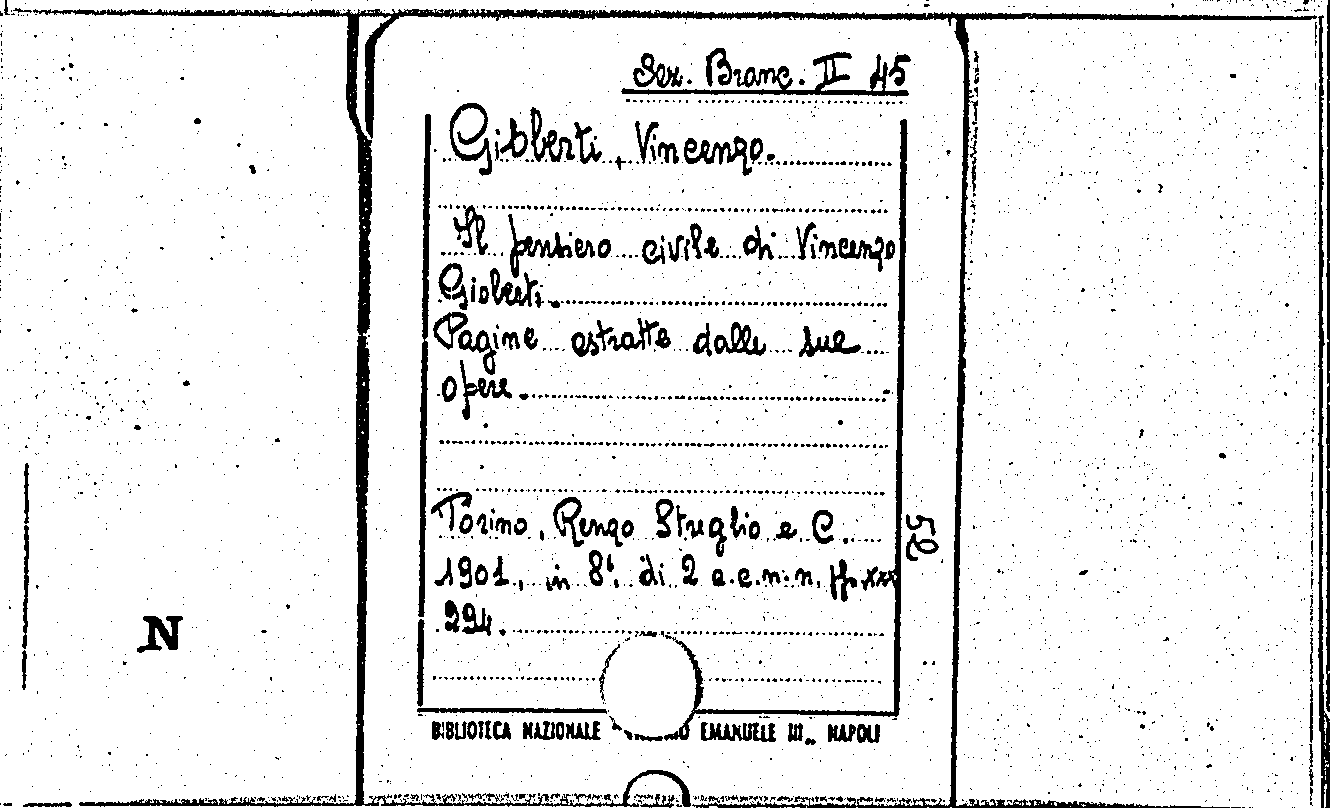 Sez. Branc. II 45
Gioberti, Vincenzo.
Il pensiero civile di Vincenzo
Gioberti.
Pagine estratte dalle sue
opere.
Torino, Renzo Streglio e C.
1901, in 8°, di 2 c.c.n.n. pp. xxx
294.
52
N
BIBLIOTECA NAZIONALE " EMANUELE III„ NAPOLI